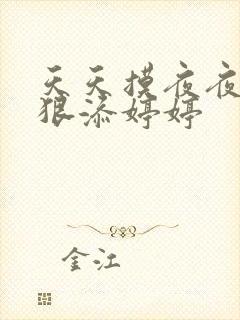 天天摸夜夜
狠添婷婷
金江